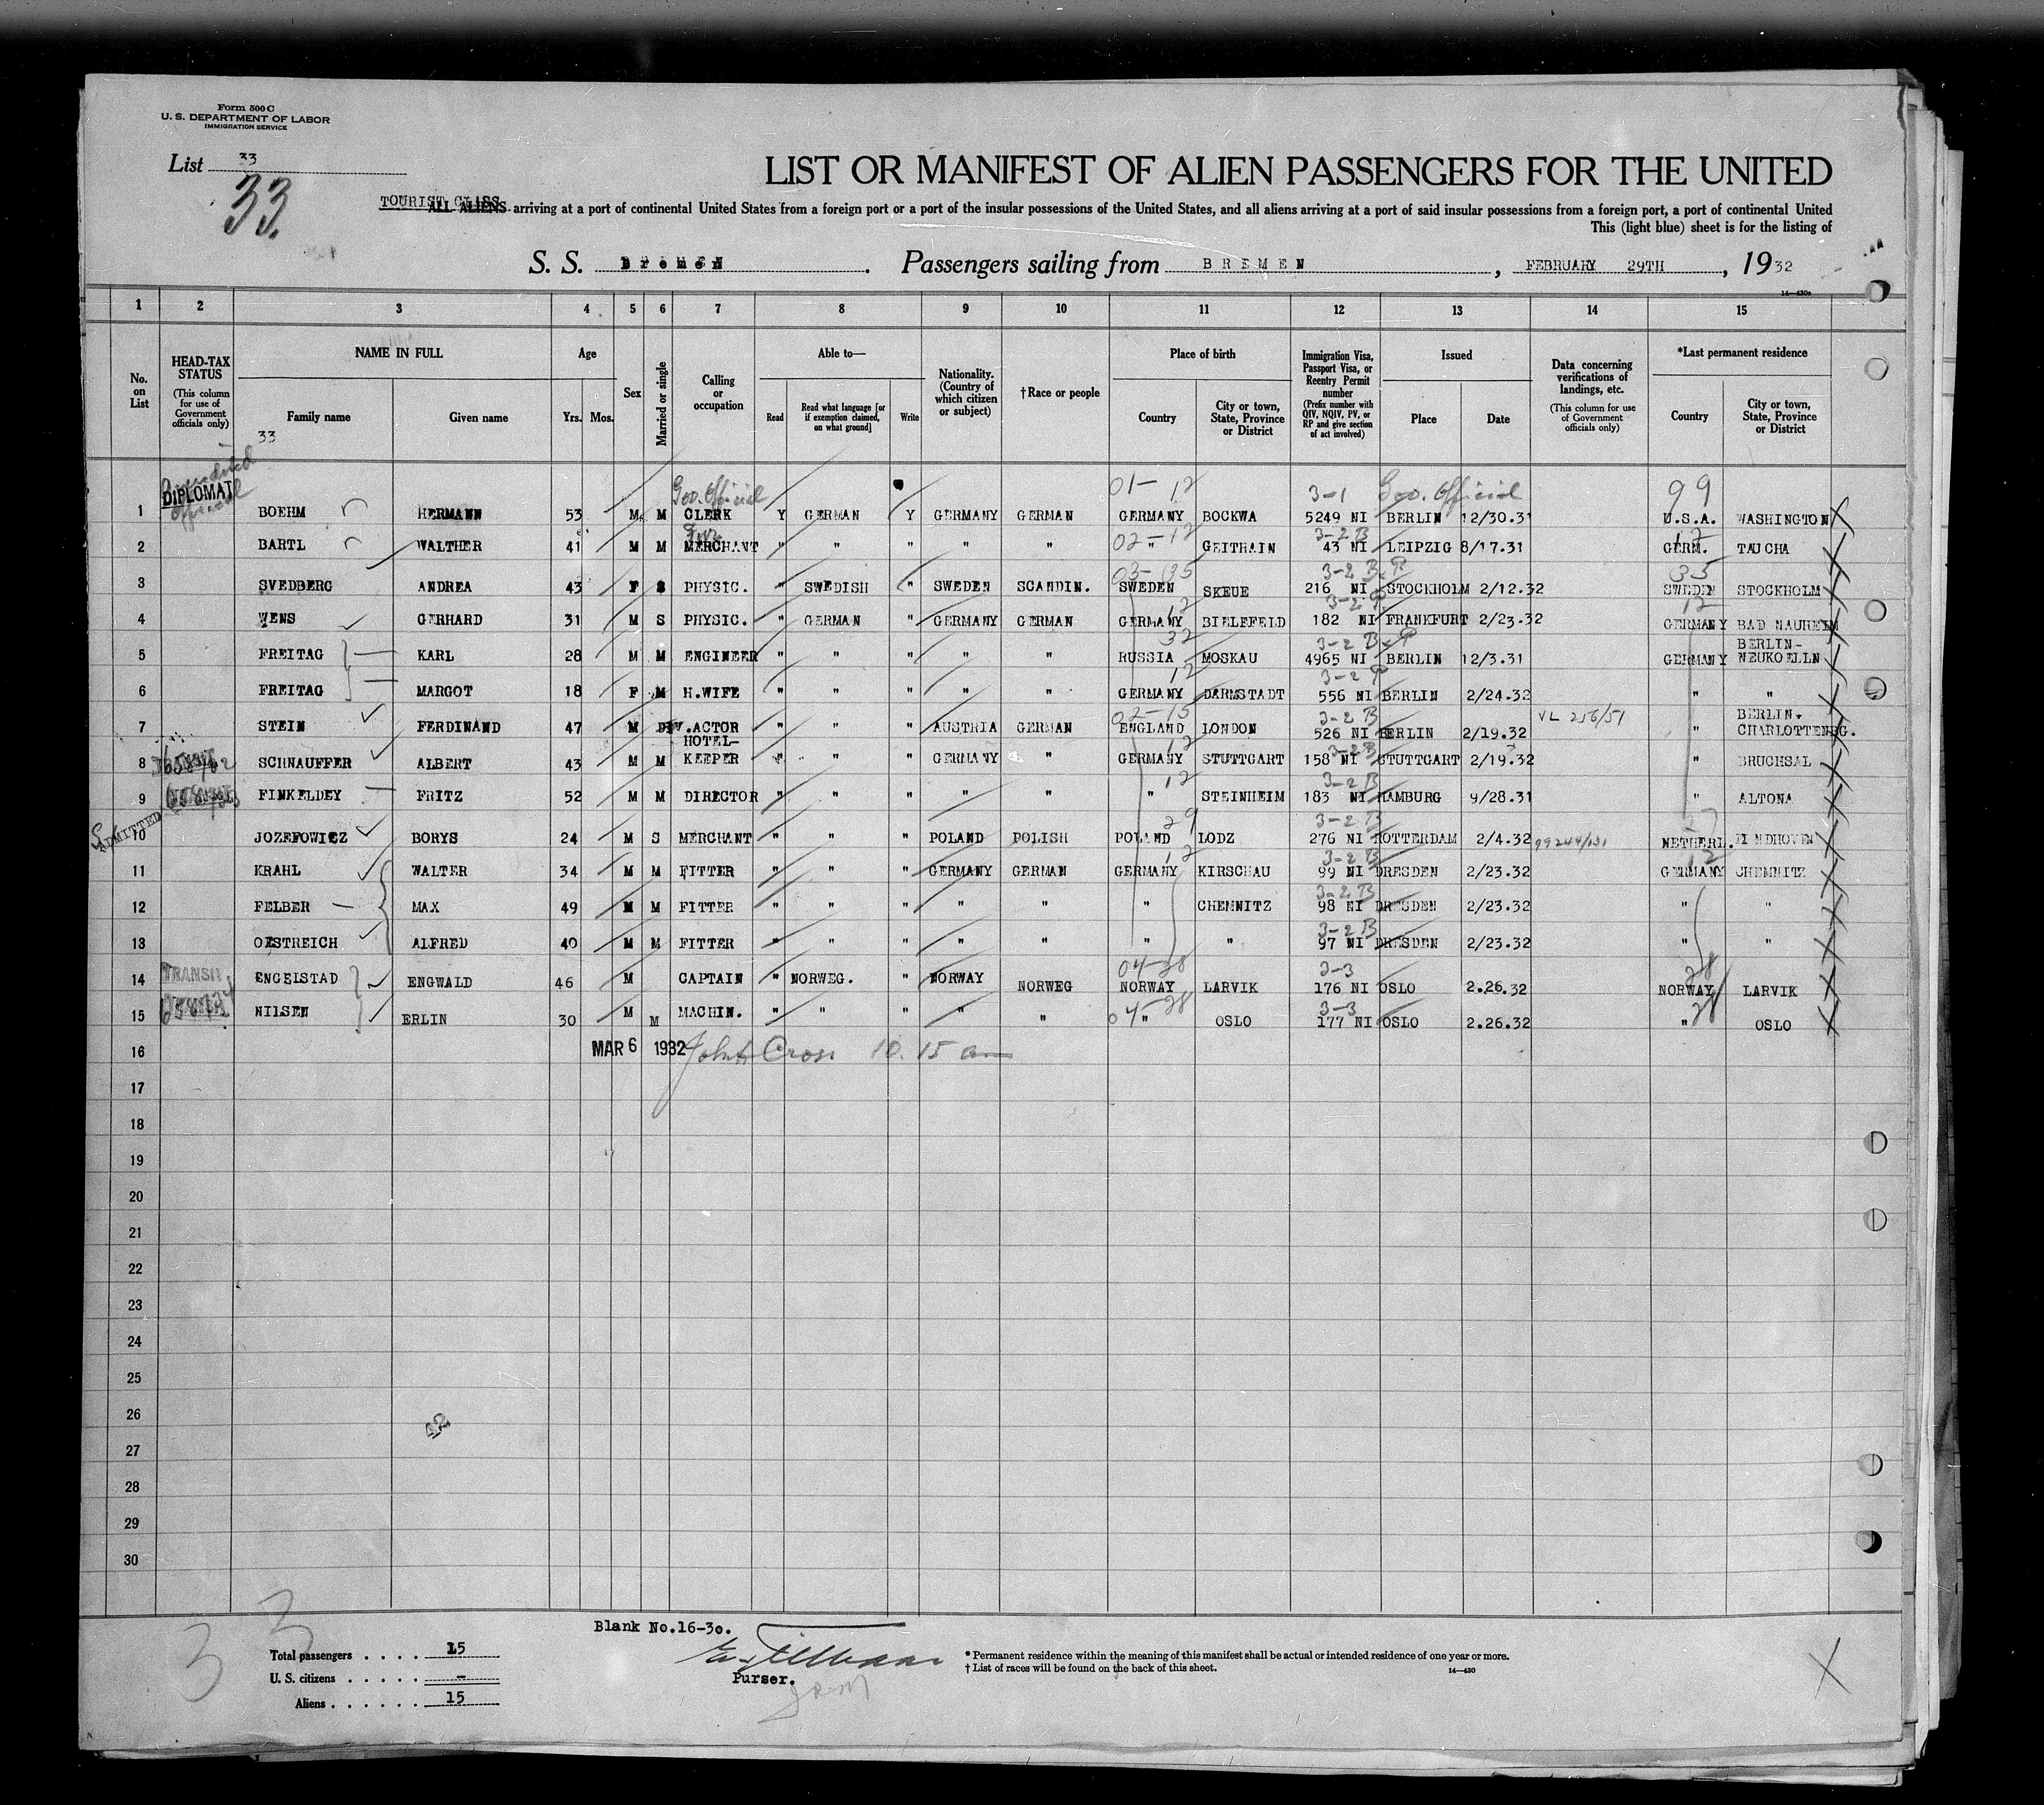 Form 500 C
U. S. DEPARTMENT OF LABOR
IMMIGRATION SERVICE
List 33
33.
LIST OR MANIFEST OF ALIEN PASSENGERS FOR THE UNITED
TOURIST CLASS
ALL ALIENS arriving at a port of continental United States from a foreign port or a port of the insular possessions of the United States, and all aliens arriving at a port of said insular possessions from a foreign port, a port of continental United
This (light blue) sheet is for the listing of
S. S. Bremen. Passengers sailing from BREMEN, FEBRUARY 29TH, 1932
14—430c
1 2 3 4 5 6 7 8 9 10 11 12 13 14 15
No. on List
HEAD-TAX STATUS (This column for use of Government officials only)
NAME IN FULL Family name Given name
33
Age Yrs. Mos.
Sex
Married or single
Calling or occupation
Able to— Read Read what language [or if exemption claimed, on what ground] Write
Nationality. (Country of which citizen or subject)
†Race or people
Place of birth Country City or town, State, Province or District
Immigration Visa, Passport Visa, or Reentry Permit number (Prefix number with QIV, NQIV, PV, or RP and give section of act involved)
Issued Place Date
Data concerning verifications of landings, etc. (This column for use of Government officials only)
*Last permanent residence Country City or town, State, Province or District
DIPLOMAT official Gov. Official 01- 12 3-1 Gov. Official 99
1 BOEHM HERMANN 53 M M CLERK Y GERMAN Y GERMANY GERMAN GERMANY BOCKWA 5249 NI BERLIN 12/30.31 U.S.A. WASHINGTON
02-12 3-2B 12
2 BARTL WALTHER 41 M M MERCHANT " " " " " " GEITHAIN 43 NI LEIPZIG 8/17.31 GERM. TAUCHA
03-35 3-2 B.P 35
3 SVEDBERG ANDREA 43 F S PHYSIC. " SWEDISH " SWEDEN SCANDIN. SWEDEN SKEUE 216 NI STOCKHOLM 2/12.32 SWEDEN STOCKHOLM
12 3-2 P. 12
4 WENS GERHARD 31 M S PHYSIC. " GERMAN " GERMANY GERMAN GERMANY BIELEFELD 182 NI FRANKFURT 2/23.32 GERMANY BAD NAUHEIM
32 3-2 B.P
5 FREITAG KARL 28 M M ENGINEER " " " " " RUSSIA MOSKAU 4965 NI BERLIN 12/3.31 GERMANY BERLIN-NEUKOELLN
12 3-2 P
6 FREITAG MARGOT 18 F M H.WIFE " " " " " GERMANY DARMSTADT 556 NI BERLIN 2/24.32 " "
02-15 3-2 B VL 256/51
7 STEIN FERDINAND 47 M DIV. ACTOR " " " AUSTRIA GERMAN ENGLAND LONDON 526 NI BERLIN 2/19.32 " BERLIN. CHARLOTTENBG.
12 3-2B
8 SCHNAUFFER ALBERT 43 M M HOTEL-KEEPER " " " GERMANY " GERMANY STUTTGART 158 NI STUTTGART 2/19.32 " BRUCHSAL
12 3-2B
9 FINKELDEY FRITZ 52 M M DIRECTOR " " " " " " STEINHEIM 183 NI HAMBURG 9/28.31 " ALTONA
ADMITTED 29 3-2B
10 JOZEFOWICZ BORYS 24 M S MERCHANT " " " POLAND POLISH POLAND LODZ 276 NI ROTTERDAM 2/4.32 99244/131 NETHERL. EINDHOVEN
12 3-2B 12
11 KRAHL WALTER 34 M M FITTER " " " GERMANY GERMAN GERMANY KIRSCHAU 99 NI DRESDEN 2/23.32 GERMANY CHEMNITZ
3-2B
12 FELBER MAX 49 M M FITTER " " " " " " CHEMNITZ 98 NI DRESDEN 2/23.32 " "
3-2B
13 OESTREICH ALFRED 40 M M FITTER " " " " " " " 97 NI DRESDEN 2/23.32 " "
TRANSIT 04-28 3-3 28
14 ENGELSTAD ENGWALD 46 M CAPTAIN " NORWEG. " NORWAY NORWEG NORWAY LARVIK 176 NI OSLO 2.26.32 NORWAY LARVIK
04-28 3-3 28
15 NILSEN ERLIN 30 M M MACHIN. " " " " " " OSLO 177 NI OSLO 2.26.32 " OSLO
16 MAR 6 1932 John Cross 10.15 am
17
18
19
20
21
22
23
24
25
26
42
27
28
29
30
33
Blank No.16-30.
Total passengers . . . . 15
U. S. citizens . . . . . –
Aliens . . . . . . 15
Purser.
* Permanent residence within the meaning of this manifest shall be actual or intended residence of one year or more.
† List of races will be found on the back of this sheet.
14—430